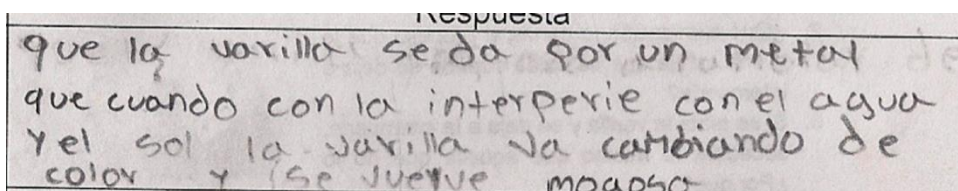 Respuesta
que la varilla se da por un metal
que cuando con la interperie con el agua
y el sol la varilla va cambiando de
color y se vuelve mogosa